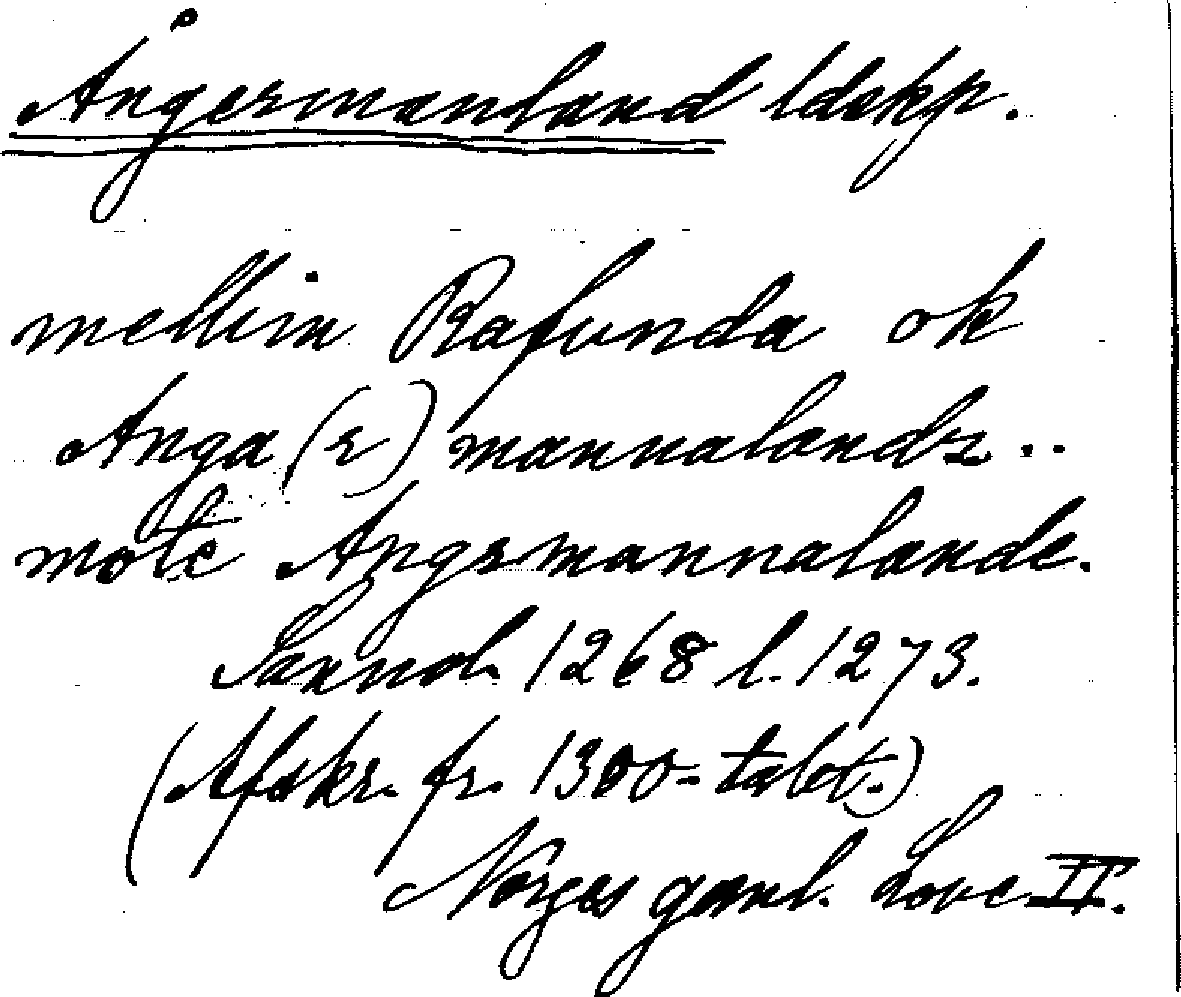 Ångermanland ldskp.
mellim Rafunda ok
Anga(r)mannalandz..
mote Angrmannalande.
Sannol. 1268 l. 1273.
(Afskr. fr. 1300-talet.)
Norges gaml. Love II.